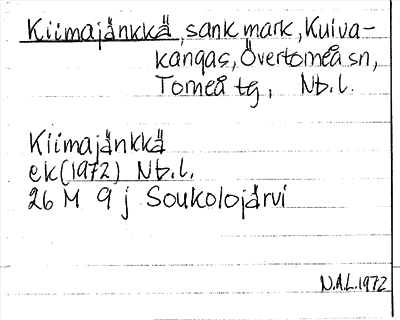 Kiimajänkkä, sank mark, Kuiva-
kangas, Övertorneå sn,
Torneå tg, Nb.l.
Kiimajänkkä
ek (1972) Nb.l.
26 M 9 j Soukolojärvi
N.A.L. 1972